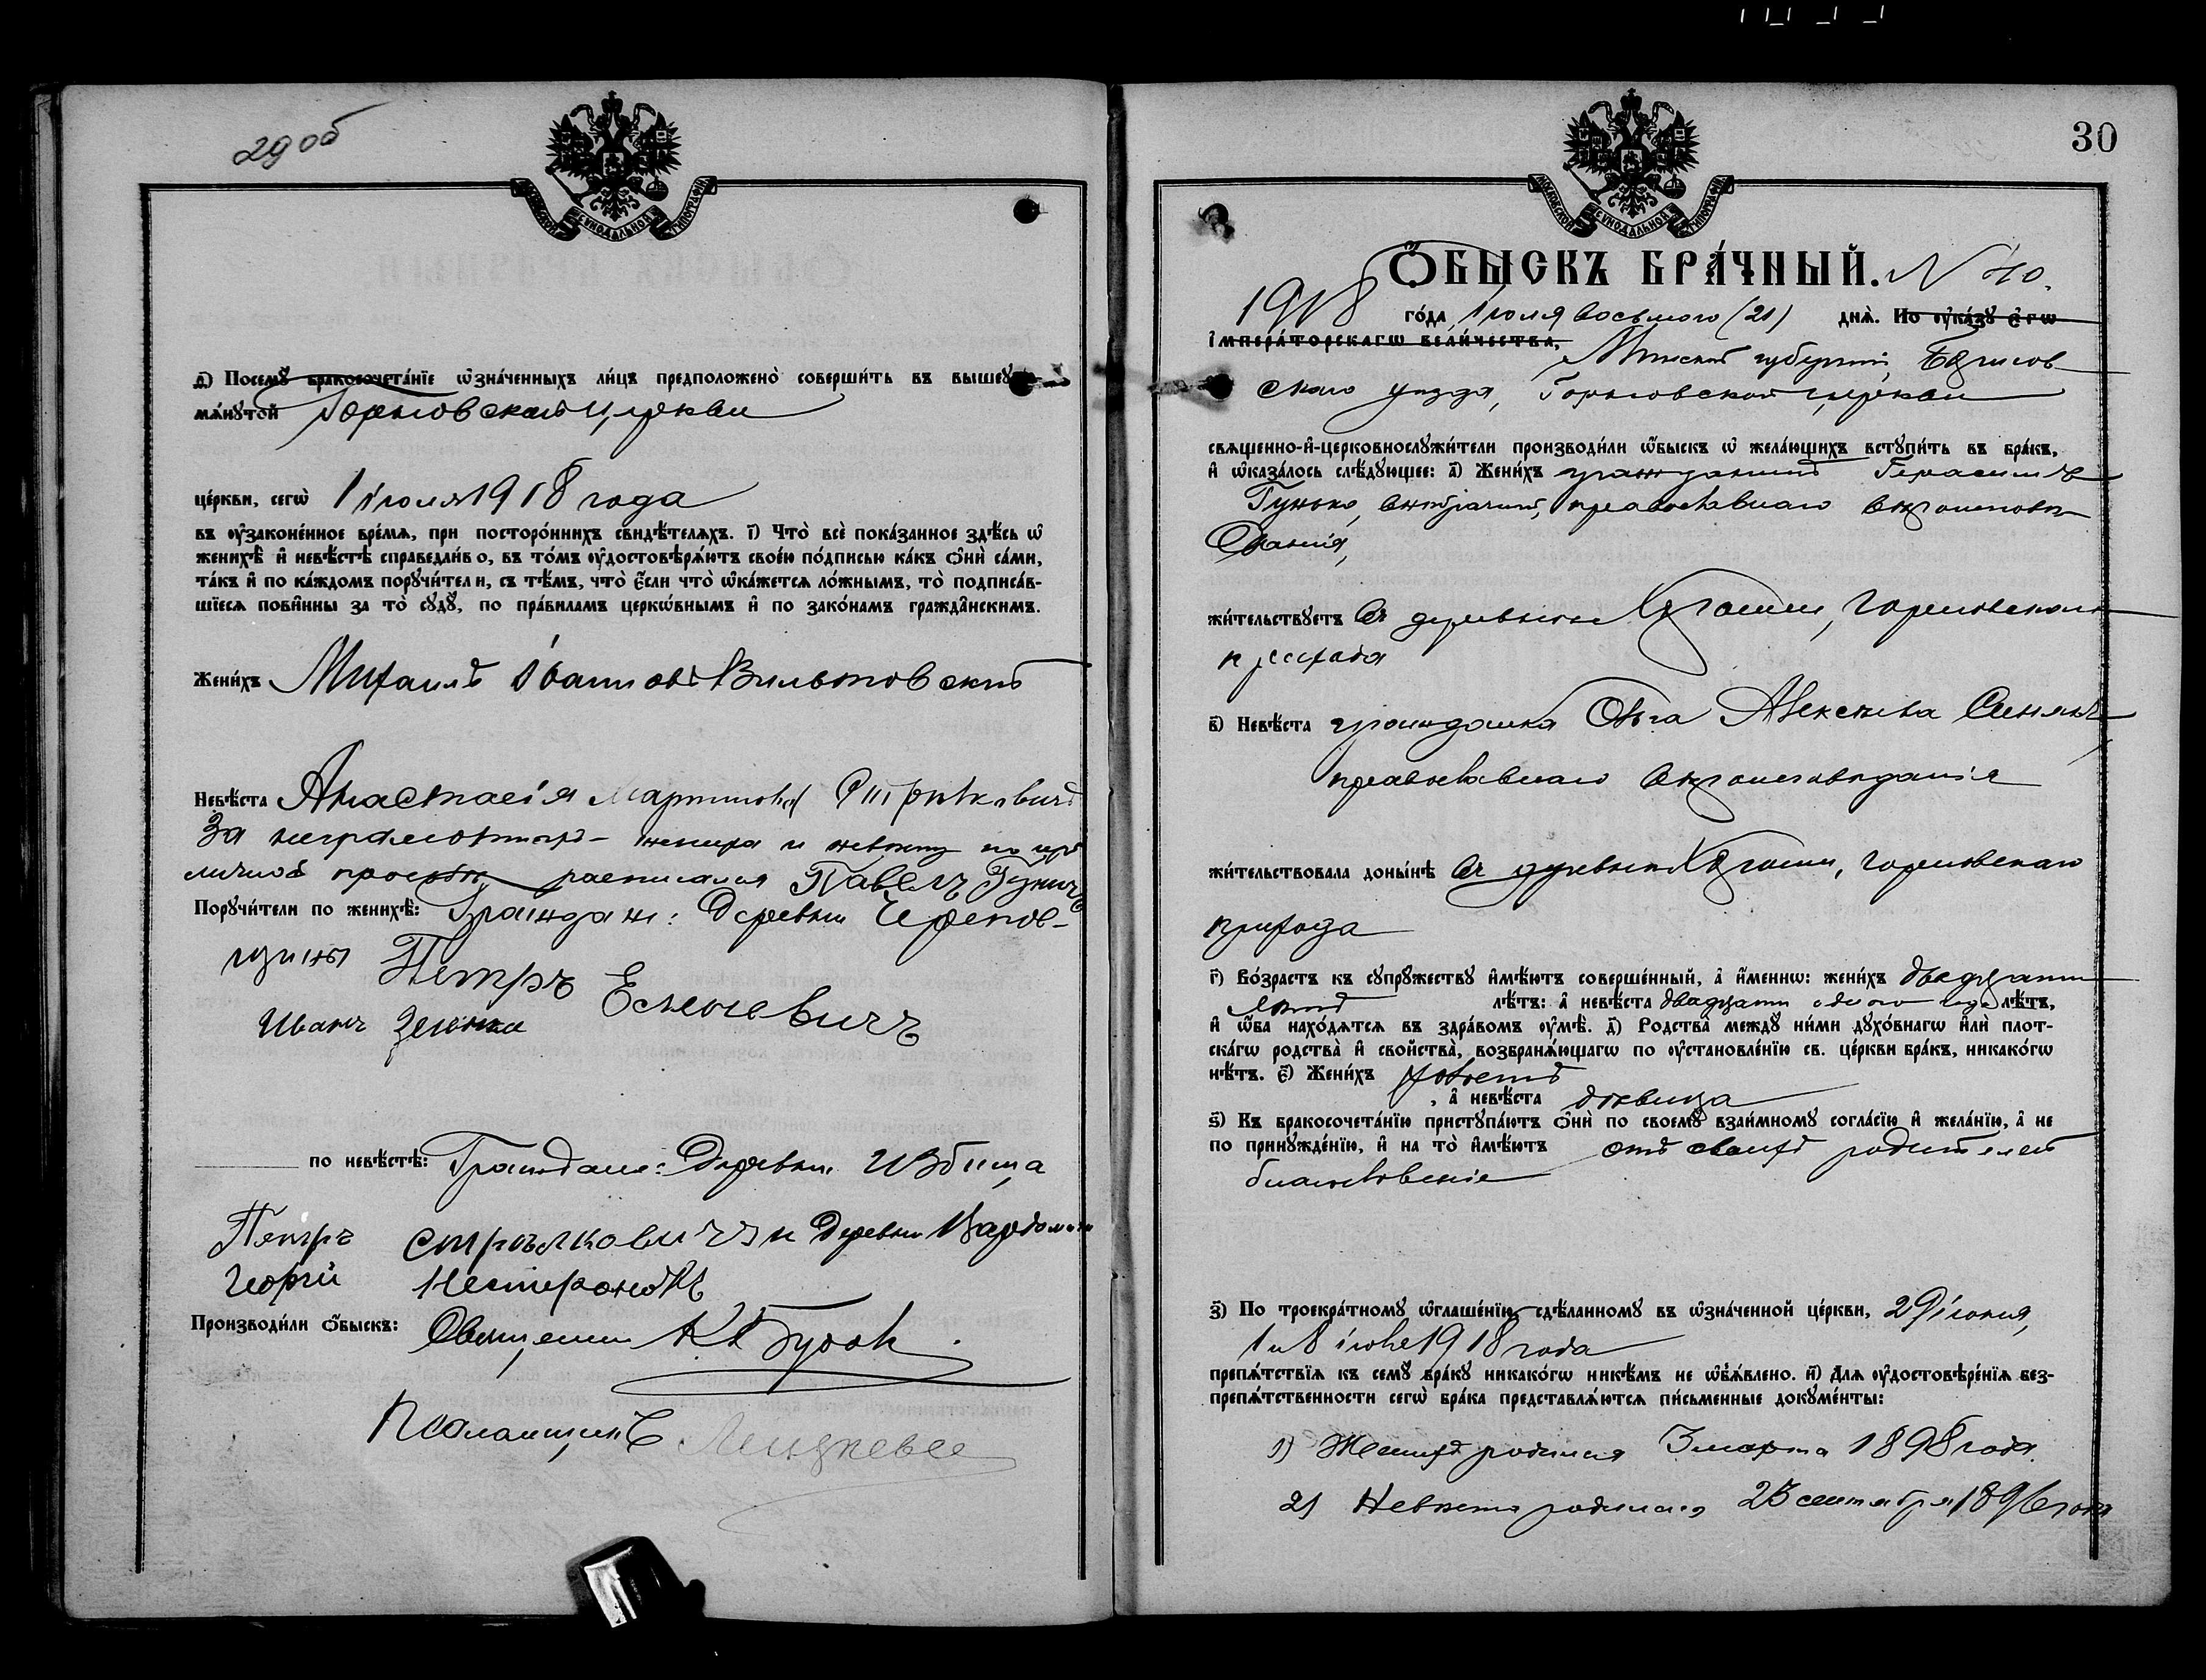 29 об
МОСКОВСКОЙ СѴНОДАЛЬНОЙ ТИПОГРАФІИ
Посемꙋ̀ бракосочета́нїе ѡ҆зна́ченныхъ ли́цъ предположено̀ соверши́ть въ вышеꙋ-
мѧ́нꙋтой церкви
це́ркви, сегѡ̀ 1 іюля 1918 года
въ ᲂу҆зако́ненное вре́мѧ, при посторо́ннихъ свидѣ́телѧхъ. і҃) Что̀ всѐ пока́занное здѣ́сь ѡ҆
женихѣ̀ и҆ невѣ́стѣ справедли́во, въ то́мъ ᲂу҆достовѣрѧ́ютъ свое́ю по́дписью ка́къ ѻ҆нѝ са́ми,
та́къ и҆ по ка́ждомъ порꙋчи́тели, съ тѣ́мъ, что̀ є҆́сли что̀ ѡ҆ка́жетсѧ ло́жнымъ, то̀ подписа́в-
шїесѧ пови́нны за то̀ сꙋдꙋ̀, по пра́виламъ церкѡ́внымъ и҆ по зако́намъ гражда̑нскимъ.
Жени́хъ Михаилъ Ивановъ Вильтовскій
Невѣ́ста Анастасія Мартинова
За неграмотныхъ жениха и невѣсту по ихъ
личной просьбѣ расписался Павелъ Гунич
Порꙋчи́тели по женихѣ̀: Граждане: Деревни Черепов-
щины Петръ Есмоневичъ
Иванъ Зеленко
по невѣ́стѣ: Граждане: Деревни Избища
Петръ Стрѣлковичъ и Деревни
Георгій Нестеронокъ
Производи́ли ѻ҆́быскъ: Священникъ
Псаломщикъ
30
МОСКОВСКОЙ СѴНОДАЛЬНОЙ ТИПОГРАФІИ
Ѻ҆́БЫСКЪ БРА́ЧНЫЙ. N 40.
1918 го́да Іюля восьмого (21) днѧ̀. По ᲂу҆ка́зꙋ Е҆гѡ̀
І҆мпера́торскагѡ вели́чества, Минской губерніи, Борисов
скаго уѣзда, церкви
свѧще́нно-и҆-церковнослꙋжи́тели производи́ли ѻ҆́быскъ ѡ҆ жела́ющихъ встꙋпи́ть въ бра́къ,
и҆ ѡ҆каза́лось слѣ́дꙋющее: а҃) Жени́хъ гражданинъ Герасимъ
Гунько, православнаго вѣроисповѣ
данія,
жи́тельствꙋетъ въ деревни
прихода
в҃) Невѣ́ста гражданка Ольга Алексѣева
православнаго вѣроисповѣданія
жи́тельствовала доны́нѣ въ деревни
прихода
г҃) Во́зрастъ къ сꙋпрꙋ́жествꙋ и҆мѣ́ютъ соверше́нный, а҆ и҆́меннѡ: жени́хъ двадцати
лѣтъ лѣ́тъ: а҆ невѣ́ста двадцати одного года лѣ́тъ,
и҆ ѻ҆́ба нахо́дѧтсѧ въ здра́вомъ ᲂу҆мѣ̀. д҃) Родства̀ междꙋ̀ ни́ми дꙋхо́внагѡ и҆лѝ плот-
ска́гѡ родства̀ и҆ сво́йства̀, возбранѧ́ющагѡ по ᲂу҆становле́нїю св. це́ркви бра́къ, никако́гѡ
нѣ́тъ. є҃) Жени́хъ холостъ
, а҆ невѣ́ста дѣвица
ѕ҃) Къ бракосочета́нїю пристꙋпа́ютъ ѻ҆нѝ по своемꙋ̀ взаи́мномꙋ согла́сїю и҆ жела́нїю, а҆ не
по принꙋжде́нїю, и҆ на то̀ и҆мѣ́ютъ отъ своихъ родителей
благословеніе
з҃) По троекра́тномꙋ ѡ҆глаше́нїю, сдѣ́ланномꙋ въ ѡ҆зна́ченной це́ркви, 29 іюня,
1 и 8 іюля 1918 года
препѧ́тствїѧ къ семꙋ̀ бра́кꙋ никако́гѡ никѣ́мъ не ѡ҆б̾ѧ́влено. и҃) Длѧ ᲂу҆достовѣре́нїѧ без-
препѧ́тственности сегѡ̀ бра́ка представлѧ́ютсѧ пи́сьменные докꙋме́нты:
1) Женихъ родился 3 марта 1898 года.
2) Невѣста родилась 25 сентября 1896 года